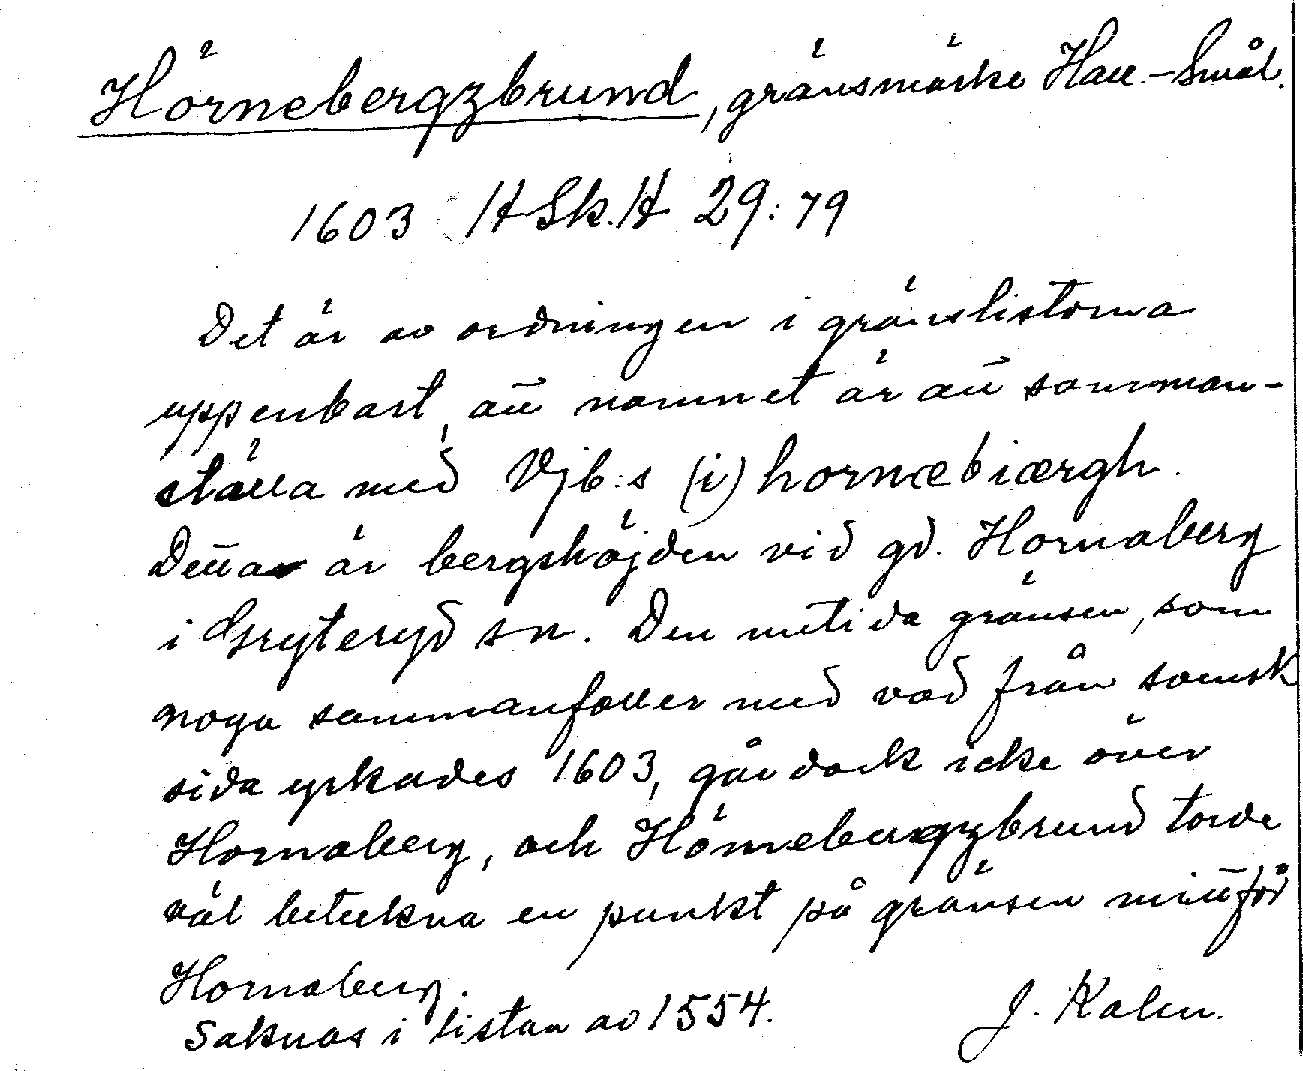 Hörnebergzbrund, gränsmärke Hall.-Smål.
1603 HSk.H 29:79
Det är av ordningen i gränslistorna
uppenbart, att namnet är att samman-
ställa med Vjb:s (i) hornæbiærgh.
Detta är bergshöjden vid gd. Hornaberg
i Gryteryd sn. Den nutida gränsen, som
noga sammanfaller med vad från svensk
sida yrkades 1603, går dock icke över
Hornaberg, och Hörnebergzbrund torde
väl beteckna en punkt på gränsen mittför
Hornaberg.
Saknas i listan av 1554.
J. Kalén.